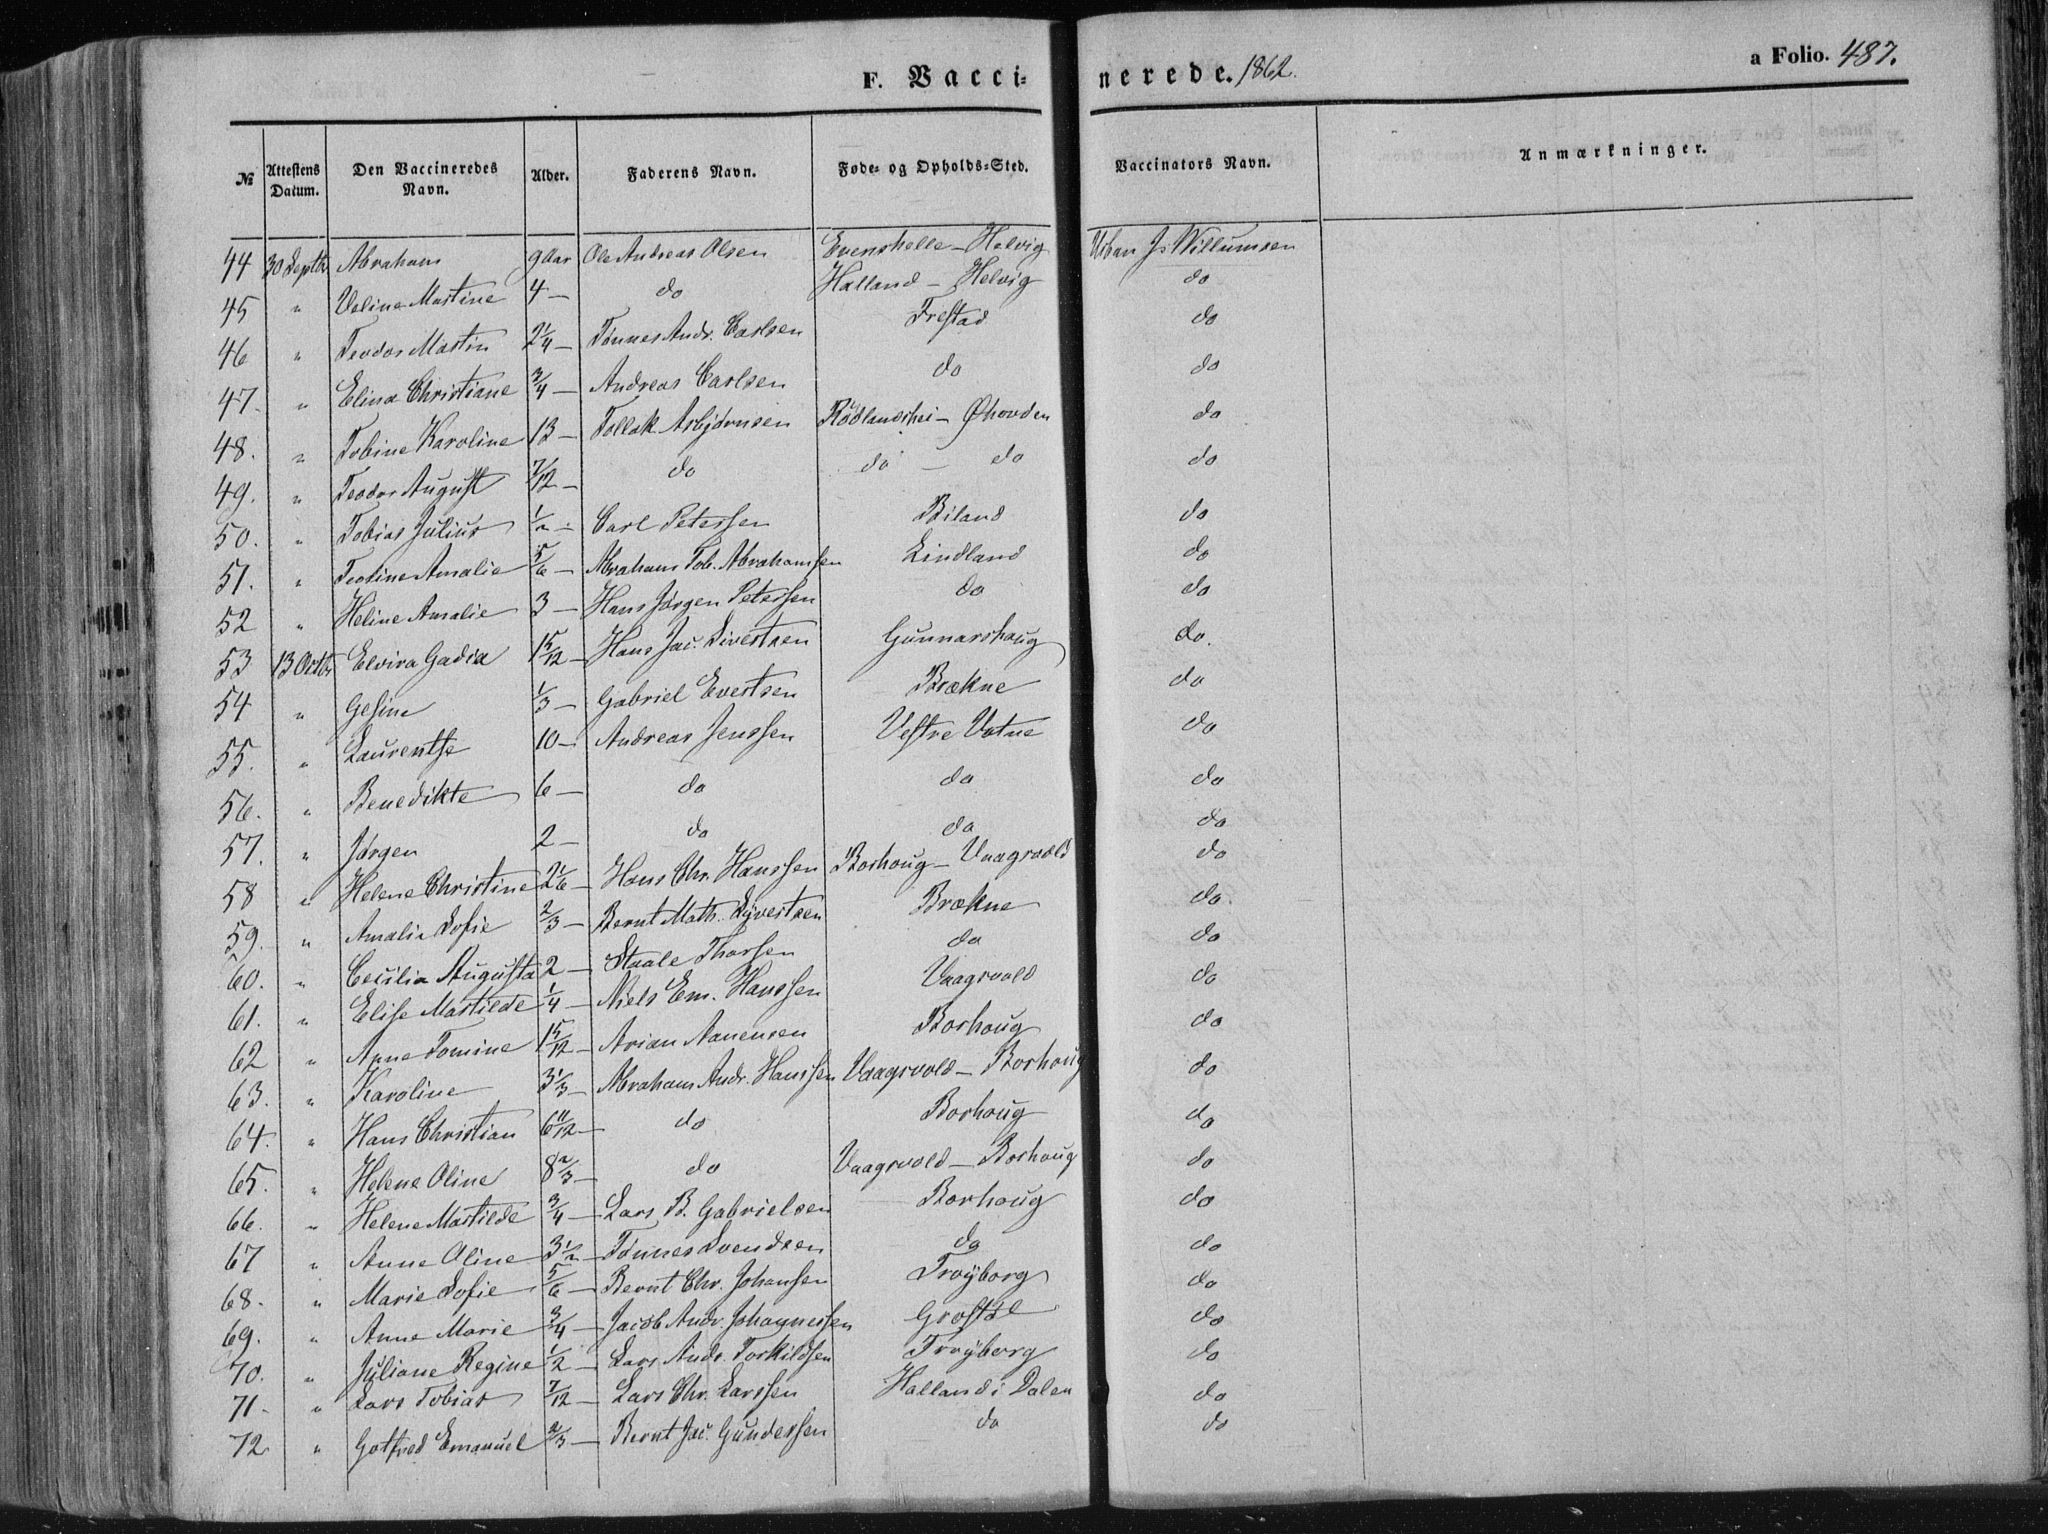 F. Vacci=
nerede. 1862.
a Folio. 487.
№ Attestens Datum. Den Vaccineredes Navn. Alder. Faderens Navn. Føde- og Opholds-Sted. Vaccinators Navn. Anmærkninger.
44 30 Septbr Abraham 9 Aar Ole Andreas Olsen Evenshelle - Helvig Urban Js Willumsen
45 " Veline Mastine 4 - do Halland - Helvig do
46 " Teodor Mastin 2 1/4 - Tønnes Andr. Carlsen Frestad do
47. " Elina Christiane 3/4 - Andreas Carlsen do do
48. " Tobine Karoline 13 - Tollak Asbjørnsen Rødlandshei - Øhovden do
49. " Teodor August 7/12 - do do - do do
50. " Tobias Julius 1/2 - Carl Petersen Biland do
51. " Teoline Amalie 5/6 - Abraham Tob. Abrahamsen Lindland do
52 " Heline Amalie 3 - Hans Jørgen Petersen do do
53 13 Octbr Elvira Gadia 1 5/12 - Hans Jac. Sivertsen Gunnarshaug do.
54 " Gesine 1/3 - Gabriel Evertsen Brækne do
55. " Laurentse 10 - Andreas Jenssen Vestre Vatne do
56. " Benedikte 6 - do do do
57. " Jørgen 2 - do do do
58 " Helene Christine 2 1/6 - Hans Chr. Hanssen Borhoug - Vaagsvold do
59. " Amalie Sofie 2/3 - Bernt Math. Syvertsen Brækne do.
60. " Cecilia Augusta 2 - Staale Thorsen do do
61. " Elise Mastilde 1/4 - Niels Em. Hanssen Vaagsvold do
62 " Anne Tomine 1 5/12 - Arian Aanensen Borhoug do
63. " Karoline 3 1/3 - Abraham Andr. Hanssen Vaagsvold - Borhoug do
64. " Hans Christian 6 11/12 - do Borhoug do
65. " Helene Oline 8 2/3 - do Vaagsvold - Borhoug do
66. " Helene Mastilde 3/4 - Lars B. Gabrielsen Borhoug do
67 " Anne Oline 3 1/2 - Tønnes Svendsen do do
68. " Marie Sofie 5/6 - Bernt Chr. Johansen Trøyborg do
69. " Anne Marie 3/4 - Jacob Andr. Johannessen do
70. " Juliane Regine 1/2 - Lars Andr. Torkildsen Trøyborg do
71. " Lars Tobias 7/12 - Lars Chr. Larssen Halland i Dalen do
72 " Gotfred Emanuel 2/3 - Bernt Jac. Gundersen do do